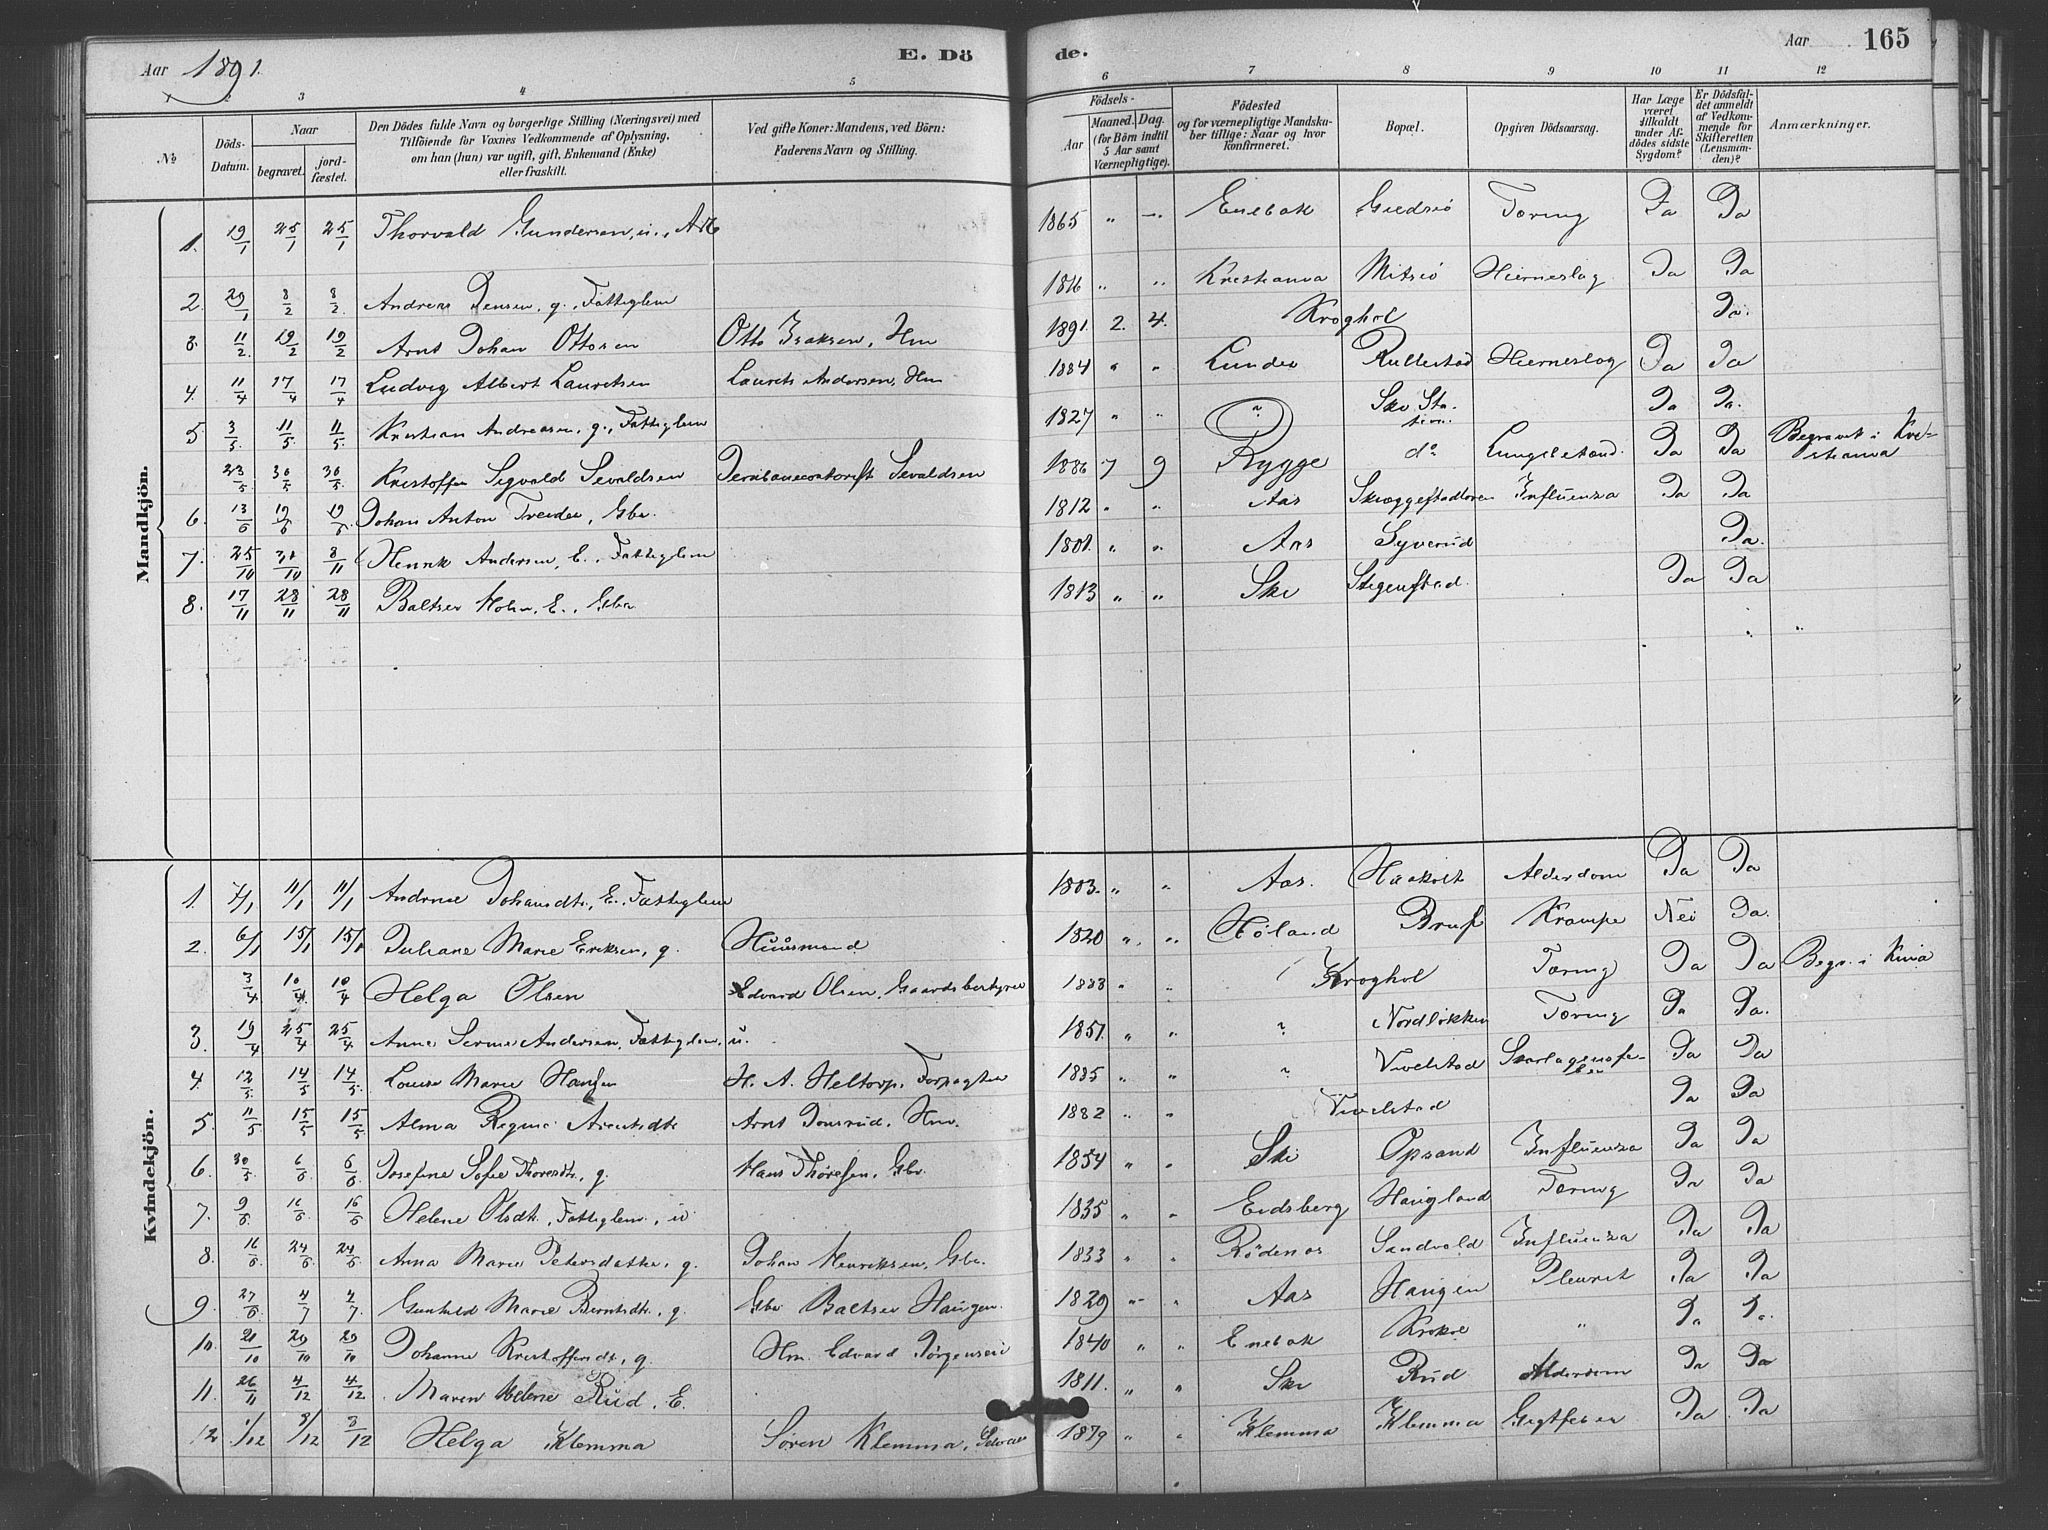 Aar 1891. E. Dö
de. Aar 165
1 2 3 4 5 6 7 8 9 10 11 12
№ Döds-Datum. Naar begravet. jord-fæstet. Den Dödes fulde Navn og borgerlige Stilling (Næringsvei) med Tilföiende for Voxnes Vedkommende af Oplysning, om han (hun) var ugift, gift, Enkemand (Enke) eller fraskilt. Ved gifte Koner: Mandens, ved Börn: Faderens Navn og Stilling. Födsels- Aar Maaned. Dag. (for Börn indtil 5 Aar samt Værnepligtige). Födested og for værnepligtige Mandskaber tillige: Naar og hvor Konfirmeret. Bopæl. Opgiven Dödsaarsag. Har Læge været tilkaldt under Afdödes sidste Sygdom? Er Dödsfaldet anmeldt af Vedkommende for Skifteretten (Lensmanden)? Anmærkninger.
Mandkjön.
1. 19/1 25/1 25/1 Thorvald Gundersen, u., Arb 1865 " " Enebak Gjedsjø Tæring Ja Ja
2. 29/1 8/2 8/2 Andreas Jensen, g., Fattiglem 1816 " " Kristiania Mitsjø Hjerneslag Ja Ja
3. 11/2 19/2 19/2 Arnt Johan Ottosen Otto Isaksen, Hm 1891. 2. 4. Kroghol Ja.
4. 11/4 17/4 17/4 Ludvig Albert Lauritsen Laurits Andersen, Hm 1884 " " Lunder Rullestad Hjerneslag Ja Ja
5. 3/5 11/5 11/5 Kristian Andreasen, g., Fattiglem 1827 " " ? Ski Station. Ja Ja.
23/5 30/5 30/5 Kristoffer Sigvald Sevaldsen Jernbanekontorist Sevaldsen 1886 7 9 Rygge do Lungebetænd. Ja Ja Begravet i Kristiania
6. 13/6 19/6 19/6 Johan Anton Treider, Gbr. 1812 " " Aas Skoggefstadloren Influenza Ja Ja
7. 25/10 31/10 8/11 Henrik Andersen, E., Fattiglem 1801. " " Aas Syverud Ja.
8. 17/11 28/11 28/11 Baltser Holm, E., Gbr 1813 " " Ski Stegenstad. Ja Ja
Kvindekjön.
1. 7/1 11/1 11/1 Andrine Johansdtr., E. Fattiglem 1803. " " Aas. Haakolt Alderdom Ja Ja
2. 6/1 15/1 15/1 Juliane Marie Eriksen, g. Huusmand 1820 " " Høland Krampe Nei Ja.
3/4 10/4 10/4 Helga Olsen Edvard Olsen, Gaardsbestyrer 1888 " " Kroghol Tæring Ja Ja Begr. i Kria
3. 19/4 25/4 25/4 Anne Serine Andersen, Fattiglem, u. 1851. " " ? Nordløkken Tæring Ja Ja.
4. 12/5 14/5 14/5 Louise Marie Hansen H. A. Heltorp, Forpagter 1885 " " ? Vevelstad Skarlagensfeber Ja Ja
5. 11/5 15/5 15/5 Alma Regine Arentsdtr Arnt Jonsrud, Hm. 1882 " " Vevelstad Ja Ja
6. 30/5 6/6 6/6 Josefine Sofie Thoresdtr, g. Hans Thoresen, Gbr. 1854 " " Ski Opsand Influenza Ja Ja
7. 9/6 16/6 16/6 Helene Olsdtr., Fattiglem, u 1835 " " Eidsberg Haugland Tæring Ja Ja
8. 16/6 24/6 24/6 Anna Marie Petersdatter, g. Johan Henriksen, Gbr. 1833 " " Rödenæs Sandvold Influenza Ja Ja
9. 27/6 4/7 4/7 Gunhild Marie Berntsdtr, g. Gbr Baltser Haugen. 1829 " " Aas Haugen Pleurit Ja Ja
10. 21/10 29/10 29/10 Johanne Kristoffersdtr, g. Hm. Edvard Jørgensen 1840 " " Enebak Krokol " Ja Ja.
11. 26/11 4/12 4/12 Maren Helene Rud, E. 1811. " " Ski Rud Alderdom Ja Ja
12 1/12 8/12 8/12 Helga Klemma Søren Klemma, Selveier 1879 " " Klemma Klemma Gigtfeber Ja Ja